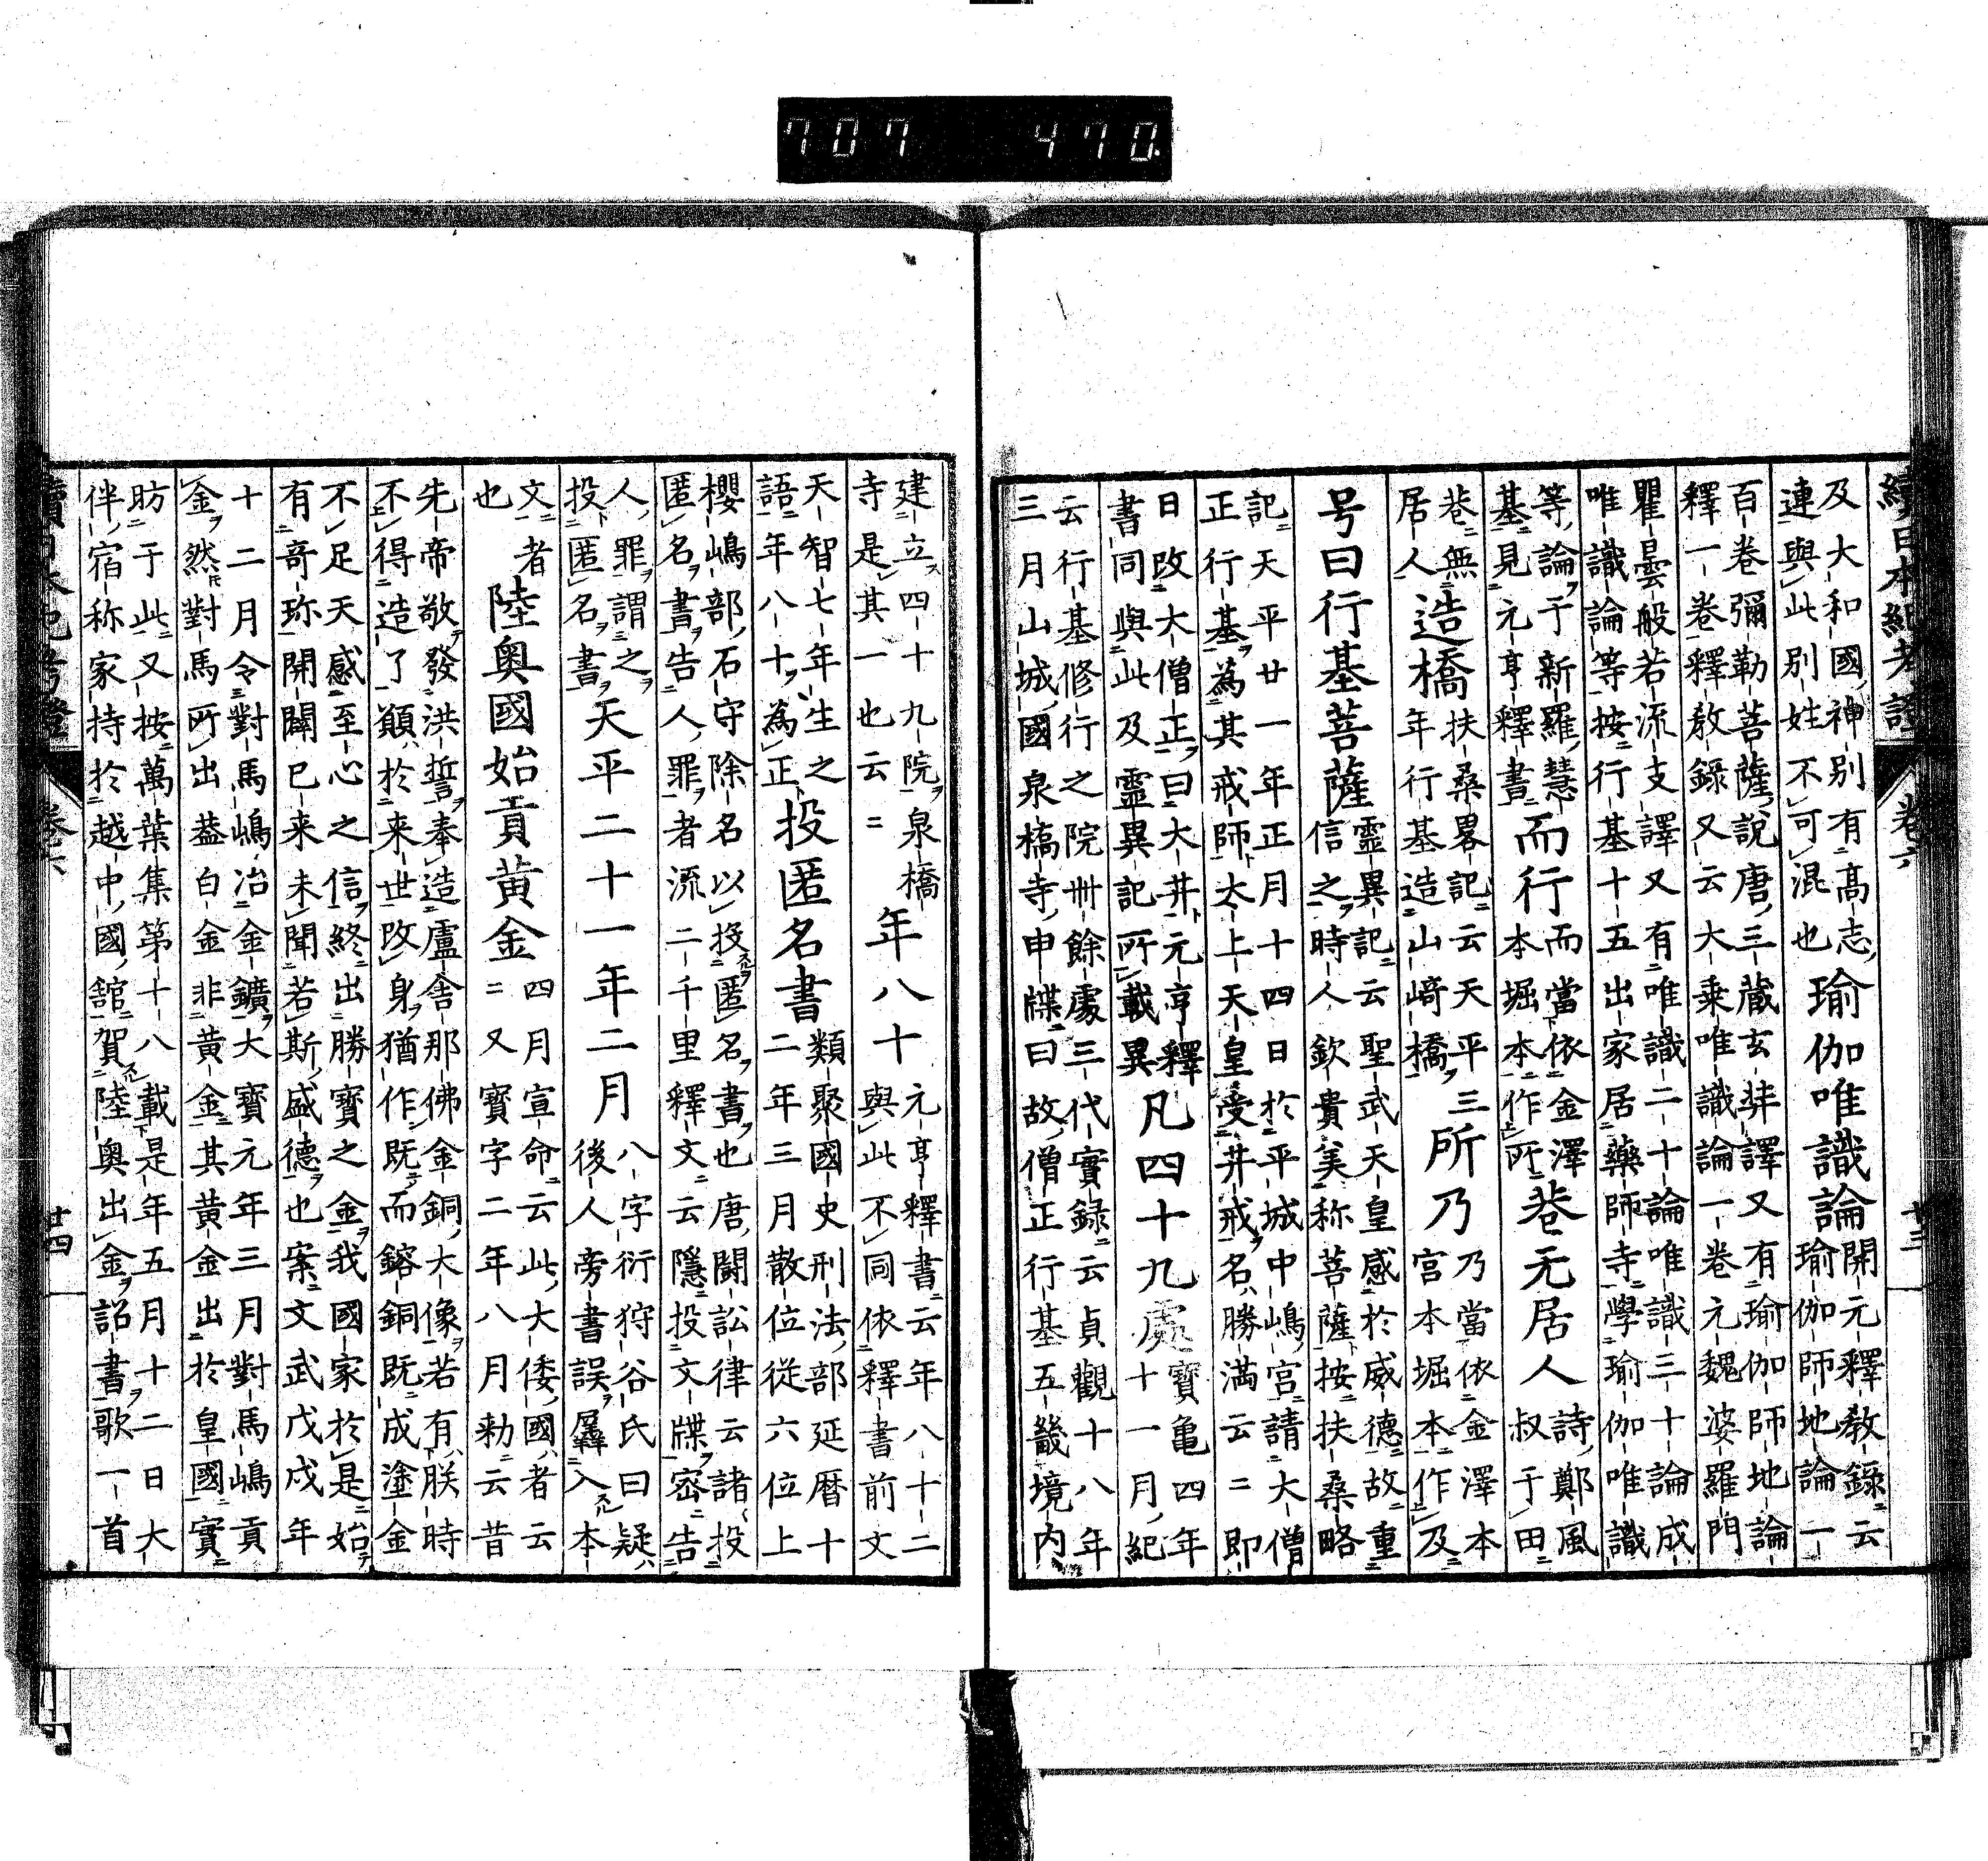 707 470
續日本紀考證 卷六 廿三
及大和國神別有高志
連與此別姓不可混也
瑜伽唯識論
開元釋教錄云
瑜伽師地論一
百卷彌勒菩薩說唐三蔵玄弉譯又有瑜伽師地論
釋一卷釋教錄又云大乗唯識論一卷元魏婆羅門
瞿曇般若流支譯又有唯識二十論唯識三十論成
唯識論等按行基十五出家居藥師寺學瑜伽唯識
等論于新羅慧
基見元亨釋書
而行
而當依金澤
本堀本作所
巷无居人
詩鄭風
叔于田
巷無
居人
造橋
扶桑畧記云天平三
年行基造山﨑橋
所乃
乃當依金澤本
宮本堀本作及
号曰行基菩薩
靈異記云聖武天皇感於威德故重
信之時人欽貴美称菩薩按扶桑略
記天平廿一年正月十四日於平城中嶋宮請大僧
正行基為其戒師太上天皇受井戒名勝満云二即
日改大僧正曰大井元亨釋
書同與此及靈異記所載異
凡四十九處
寶亀四年
十一月紀
云行基修行之院卌餘處三代實録云貞觀十八年
三月山城國泉橋寺申牒曰故僧正行基五畿境内
建立四十九院泉橋
寺是其一也云二
年八十
元亨釋書云年八十二
與此不同依釋書前文
天智七年生之
語年八十為正
投匿名書
類聚國史刑法部延暦十
二年三月散位從六位上
櫻嶋部石守除名以投匿名書也唐闘訟律云諸投
匿名書告人罪者流二千里釋文云隱投文牒密告
人罪謂之
投匿名書
天平二十一年二月
八字衍狩谷氏曰疑
後人旁書誤羼入本
文者
也
陸奥國始貢黄金
四月宣命云此大倭國者云
二又寳字二年八月勅云昔
先帝敬發洪誓奉造盧舎那佛金銅大像若有朕時
不得造了願於来世改身猶作既而鎔銅既成塗金
不足天感至心之信終出勝寶之金我國家於是始
有竒珎開闢已来未聞若斯盛德也案文武戊戌年
十二月令對馬嶋冶金鑛大寶元年三月對馬嶋貢
金然對馬所出盖白金非黄金其黄金出於皇國實
昉于此又按萬葉集第十八載是年五月十二日大
伴宿称家持於越中國舘賀陸奥出金詔書歌一首
續日本紀考證 卷六 廿四